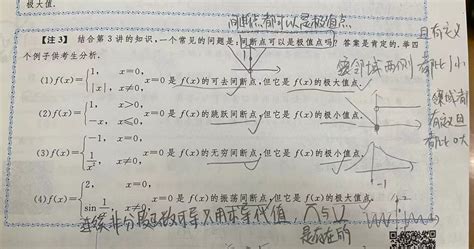 极大值.
间断点都可以是极值点
【注3】 结合第3讲的知识,一个常见的问题是,间断点可以是极值点吗?答案是肯定的.举四
个例子供考生分析.
且有定义
邻域两侧都比小
(1) f(x)={1, x=0, |x|, x≠0, x=0是f(x)的可去间断点,但它是f(x)的极大值点.
(2) f(x)={1, x>0, -x, x≤0, x=0是f(x)的跳跃间断点,但它是f(x)的极小值点.
邻域都
有定义且
都比0大
(3) f(x)={-1, x=0, 1/x², x≠0, x=0是f(x)的无穷间断点,但它是f(x)的极小值点.
-1
(4) f(x)={2, x=0, sin 1/x, x≠0, x=0是f(x)的振荡间断点,但它是f(x)的极大值点.
2
连续非分段函数可导只用求导代值,
是存在的